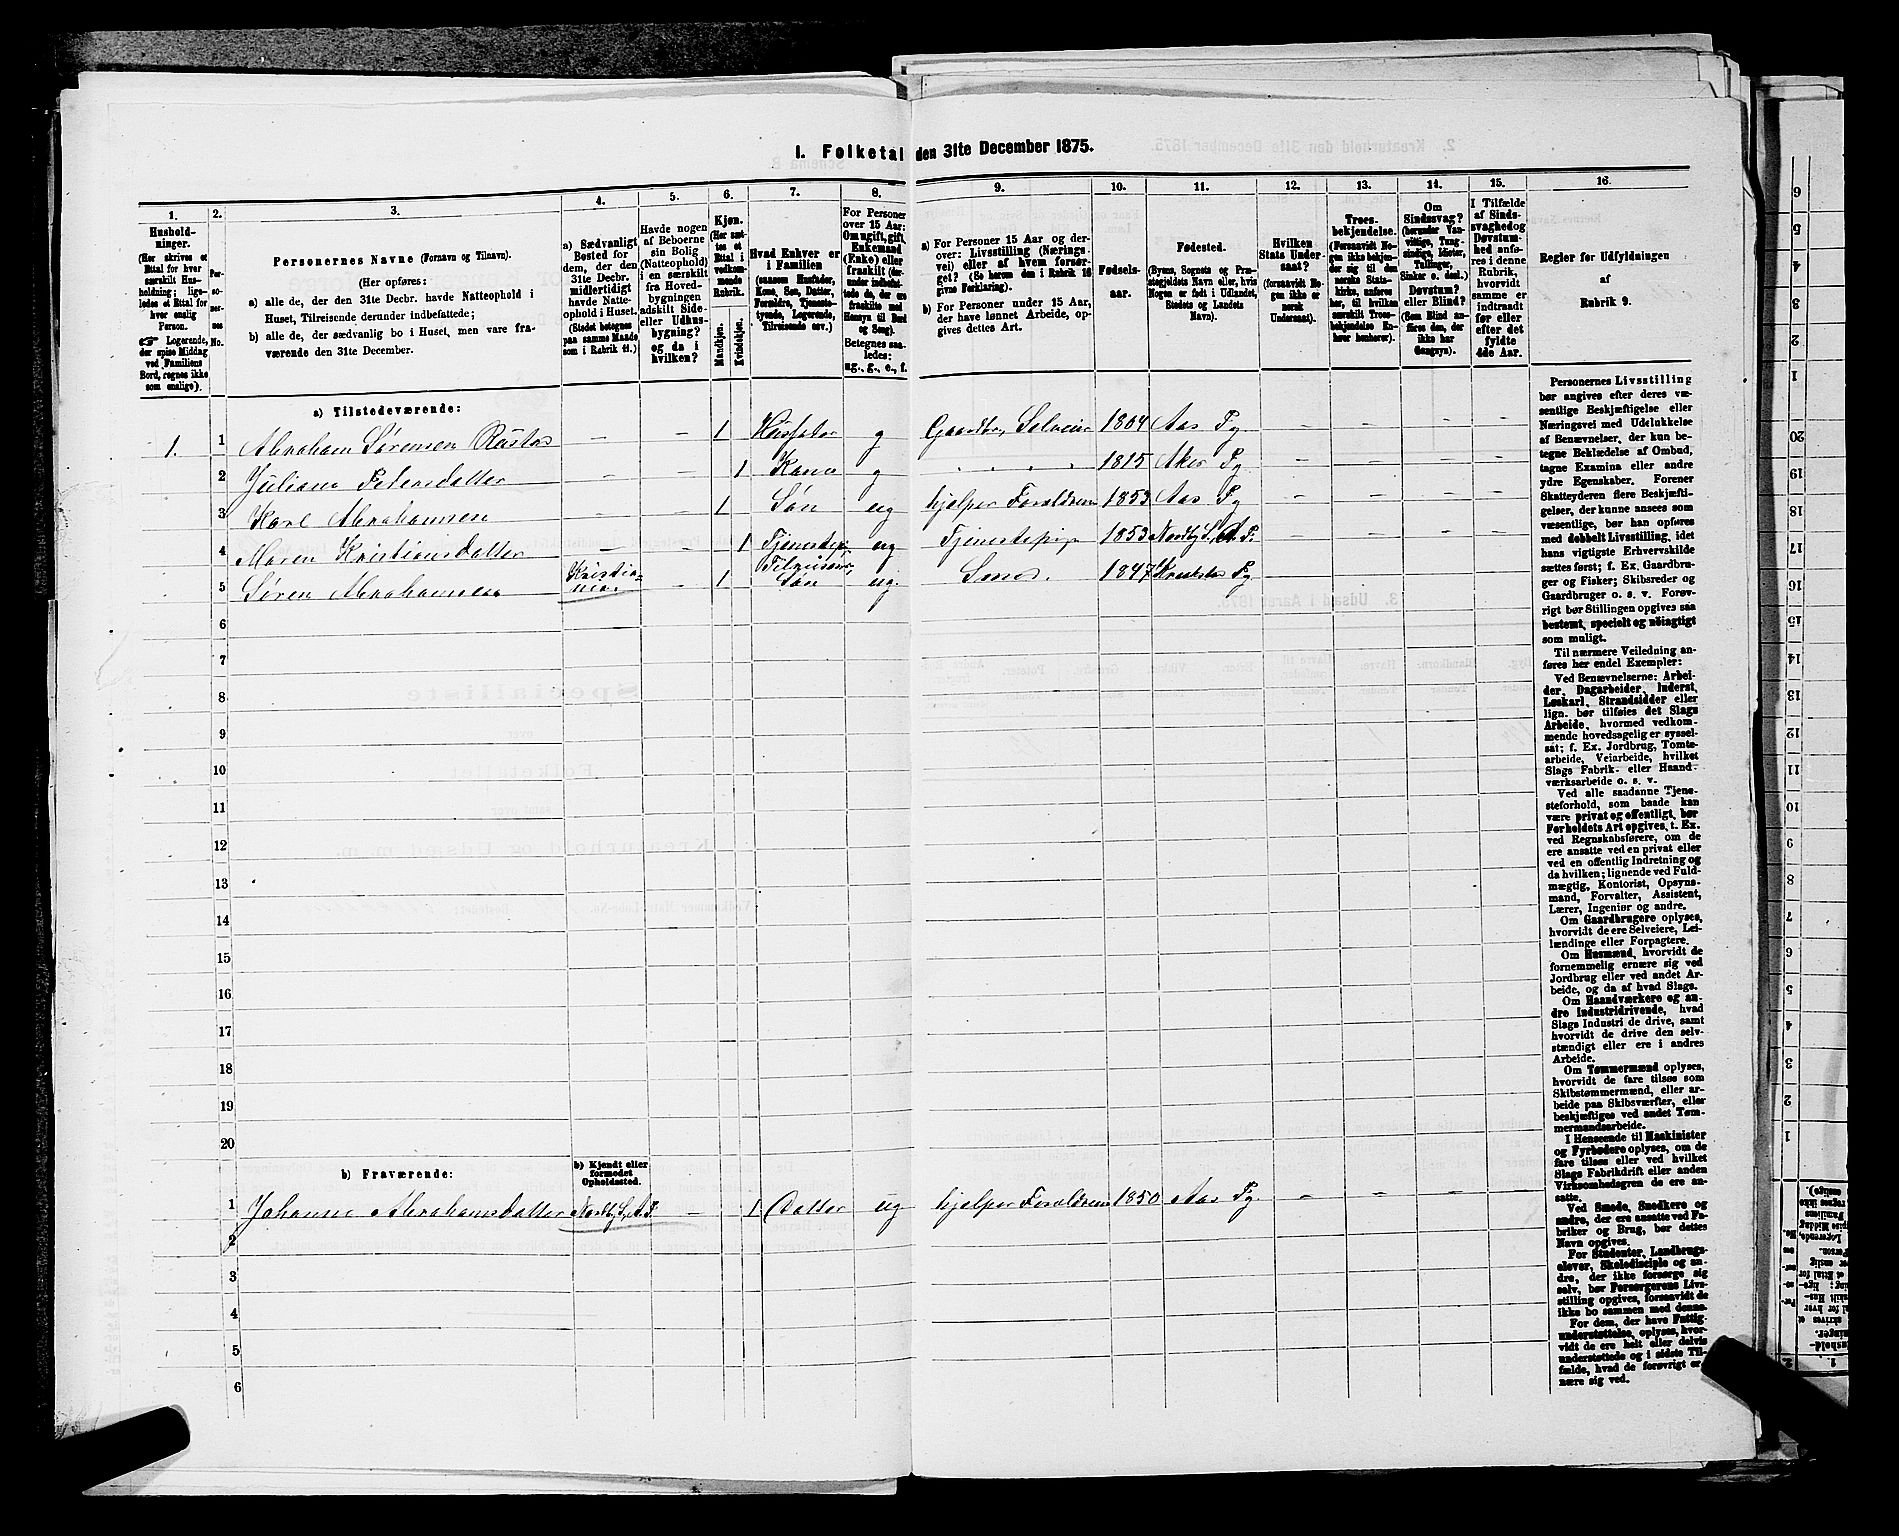 I. Folketal den 31te December 1875.
1. 2. 3. 4. 5. 6. 7. 8. 9. 10. 11. 12. 13. 14. 15. 16.
Hushold-
ninger.
(Her skrives et
Ettal for hver
særskilt Hus-
holdning; lige-
ledes et Ettal for
hver enslig
Person.
☞ Logerende,
der spise Middag
ved Familiens
Bord, regnes ikke
som enslige).
Per-
so-
ner-
nes
No.
Personernes Navne (Fornavn og Tilnavn).
(Her opføres:
a) alle de, der den 31te Decbr. havde Natteophold i
Huset, Tilreisende derunder indbefattede;
b) alle de, der sædvanlig bo i Huset, men vare fra-
værende den 31te December.
a) Sædvanligt
Bosted for
dem, der den
31te Decbr.
midlertidigt
havde Natte-
ophold i Huset.
(Stedet betegnes
paa samme Maade
som i Rubrik 11.)
Havde nogen
af Beboerne
sin Bolig
(Natteophold)
i en særskilt
fra Hoved-
bygningen
adskilt Side-
eller Udhus-
bygning?
og da i
hvilken?
Kjøn.
(Her sæt-
tes et
Ettal i
vedkom-
mende
Rubrik.
Mandkjøn.
Kvindekjøn.
Hvad Enhver er
i Familien
(saasom Husfader,
Kone, Søn, Datter,
Forældre, Tjeneste-
tyende, Logerende,
Tilreisende osv.)
For Personer
over 15 Aar:
Om ugift, gift,
Enkemand
(Enke) eller
fraskilt (der-
under indbefat-
tede de, der ere
fraskilte med
Hensyn til Bord
og Seng).
Betegnes saa-
ledes:
ug., g., e., f.
a) For Personer 15 Aar og der-
over: Livsstilling (Nærings-
vei) eller af hvem forsør-
get? (Se herom den i Rubrik 16
givne Forklaring).
b) For Personer under 15 Aar,
der have lønnet Arbeide, op-
gives dettes Art.
Fødsels-
aar.
Fødested.
(Byens, Sognets og Præ-
stegjeldets Navn eller, hvis
Nogen er født i Udlandet,
Stedets og Landets
Navn).
Hvilken
Stats Under-
saat?
(forsaavidt No-
gen ikke er
norsk
Undersaat).
Troes-
bekjendelse.
(Forsaavidt No-
gen ikke bekjen-
der sig til den
norske Stats-
kirke, anføres
her, til hvilken
særskilt Troes-
bekjendelse En-
hver henhører).
Om
Sindssvag?
(herunder Van-
vittige, Tung-
sindige, Idioter,
Tullinger,
Sinker o. desl.)
Døvstum?
eller Blind?
(Som Blind an-
føres den, der
ikke har
Gangsyn).
I Tilfælde
af Sinds-
svaghed og
Døvstum-
hed anfø-
res i denne
Rubrik,
hvorvidt
samme er
indtraadt
før eller
efter det
fyldte
4de Aar.
Regler for Udfyldningen
af
Rubrik 9.
a) Tilstedeværende:
1. 1 Abraham Sørensen Rustad – – 1 Husfader g Gaardbr, Selveier 1804 Aas Pg – – – –
2 Juliane Pedersdatter – – 1 Kone g 1815 Aker Pg – – – –
3 Karl Abrahamsen – – 1 Søn ug hjælper Forældrene 1853 Aas Pg – – – –
4 Maren Kristiansdatter – – 1 Tjenestep. ug Tjenestepige 1853 Nordby S, A. P. – – – –
5 Søren Abrahamsen Kristiania – 1 Tilreisende, Søn ug. Smed. 1847 Kraakstad Pg – – – –
6
7
8
9
10
11
12
13
14
15
16
17
18
19
20
b) Fraværende:
b) Kjendt eller
formodet
Opholdssted.
1 Johanne Abrahamsdatter Nordby S, A. P. – 1 Datter ug hjelper Forældrene 1850 Aas Pg. – – – –
2
3
4
5
6
Personernes Livsstilling
bør angives efter deres væ-
sentlige Beskjæftigelse eller
Næringsvei med Udelukkelse
af Benævnelser, der kun be-
tegne Beklædelse af Ombud,
tagne Examina eller andre
ydre Egenskaber. Forener
Skatteyderen flere Beskjæfti-
gelser, der kunne ansees som
væsentlige, bør han opføres
med dobbelt Livsstilling, idet
hans vigtigste Erhvervskilde
sættes først; f. Ex. Gaardbru-
ger og Fisker; Skibsreder og
Gaardbruger o. s. v. Forøv-
rigt bør Stillingen opgives saa
bestemt, specielt og nøiagtigt
som muligt.
Til nærmere Veiledning an-
føres her endel Exempler:
Ved Benævnelserne: Arbei-
der, Dagarbeider, Inderst,
Løskarl, Strandsidder eller
lign. bør tilføies det Slags
Arbeide, hvormed vedkom-
mende hovedsagelig er syssel-
sat; f. Ex. Jordbrug, Tomte-
arbeide, Veiarbeide, hvilket
Slags Fabrik- eller Haand-
værksarbeide o. s. v.
Ved alle saadanne Tjene-
steforhold, som baade kan
være privat og offentligt, bør
Forholdets Art opgives, t. Ex.
ved Regnskabsførere, om de
ere ansatte ved en privat eller
ved en offentlig Indretning og
da hvilken; lignende ved Fuld-
mægtig, Kontorist, Opsyns-
mand, Forvalter, Assistent,
Lærer, Ingeniør og andre.
Om Gaardbrugere oplyses,
hvorvidt de ere Selveiere, Lei-
lændinge eller Forpagtere.
Om Husmænd, hvorvidt de
fornemmelig ernære sig ved
Jordbrug eller ved andet Ar-
beide, og da af hvad Slags.
Om Haandværkere og an-
dre Industridrivende, hvad
Slags Industri de drive, samt
hvorvidt de drive den selv-
stændigt eller ere i andres
Arbeide.
Om Tømmermænd oplyses,
hvorvidt de fare tilsøs som
Skibstømmermænd, eller ar-
beide paa Skibsværfter, eller
beskjæftiges ved andet Tøm-
mermandsarbeide.
I Henseende til Maskinister
og Fyrbødere oplyses, om de
fare tilsøs eller ved hvilket
Slags Fabrikdrift eller anden
Virksomhedsgren de ere an-
satte.
Ved Smede, Snedkere og
andre, der ere ansatte ved Fa-
briker og Brug, bør dettes
Navn opgives.
For Studenter, Landbrugs-
elever, Skoledisciple og an-
dre, der ikke forsørge sig
selv, bør Forsørgerens Livs-
stilling opgives, forsaavidt de
ikke bo sammen med denne.
For dem, der have Fattig-
understøttelse, oplyses, hvor-
vidt de ere helt eller delvis
understøttede og i sidste Til-
fælde, hvad de forøvrigt er-
nære sig ved.